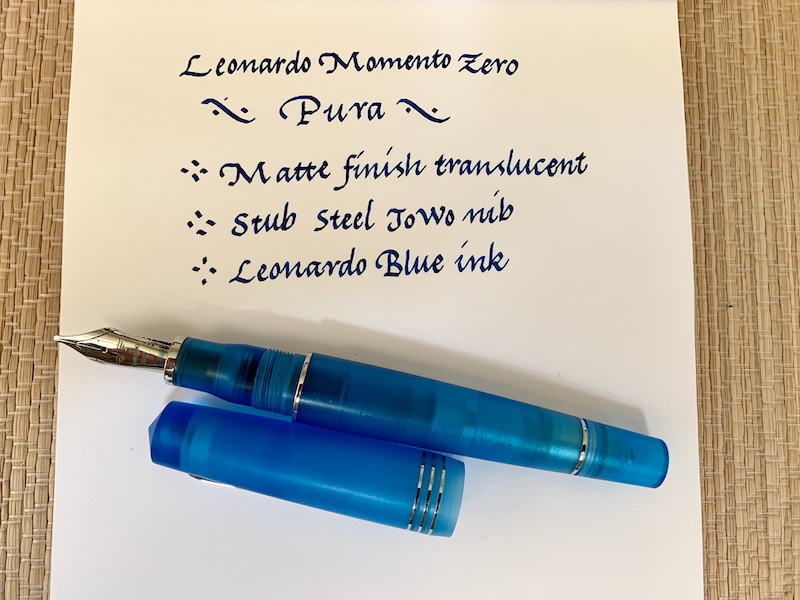 Leonardo Momento Zero
Pura
Matte finish translucent
Stub Steel JoWo nib
Leonardo Blue ink